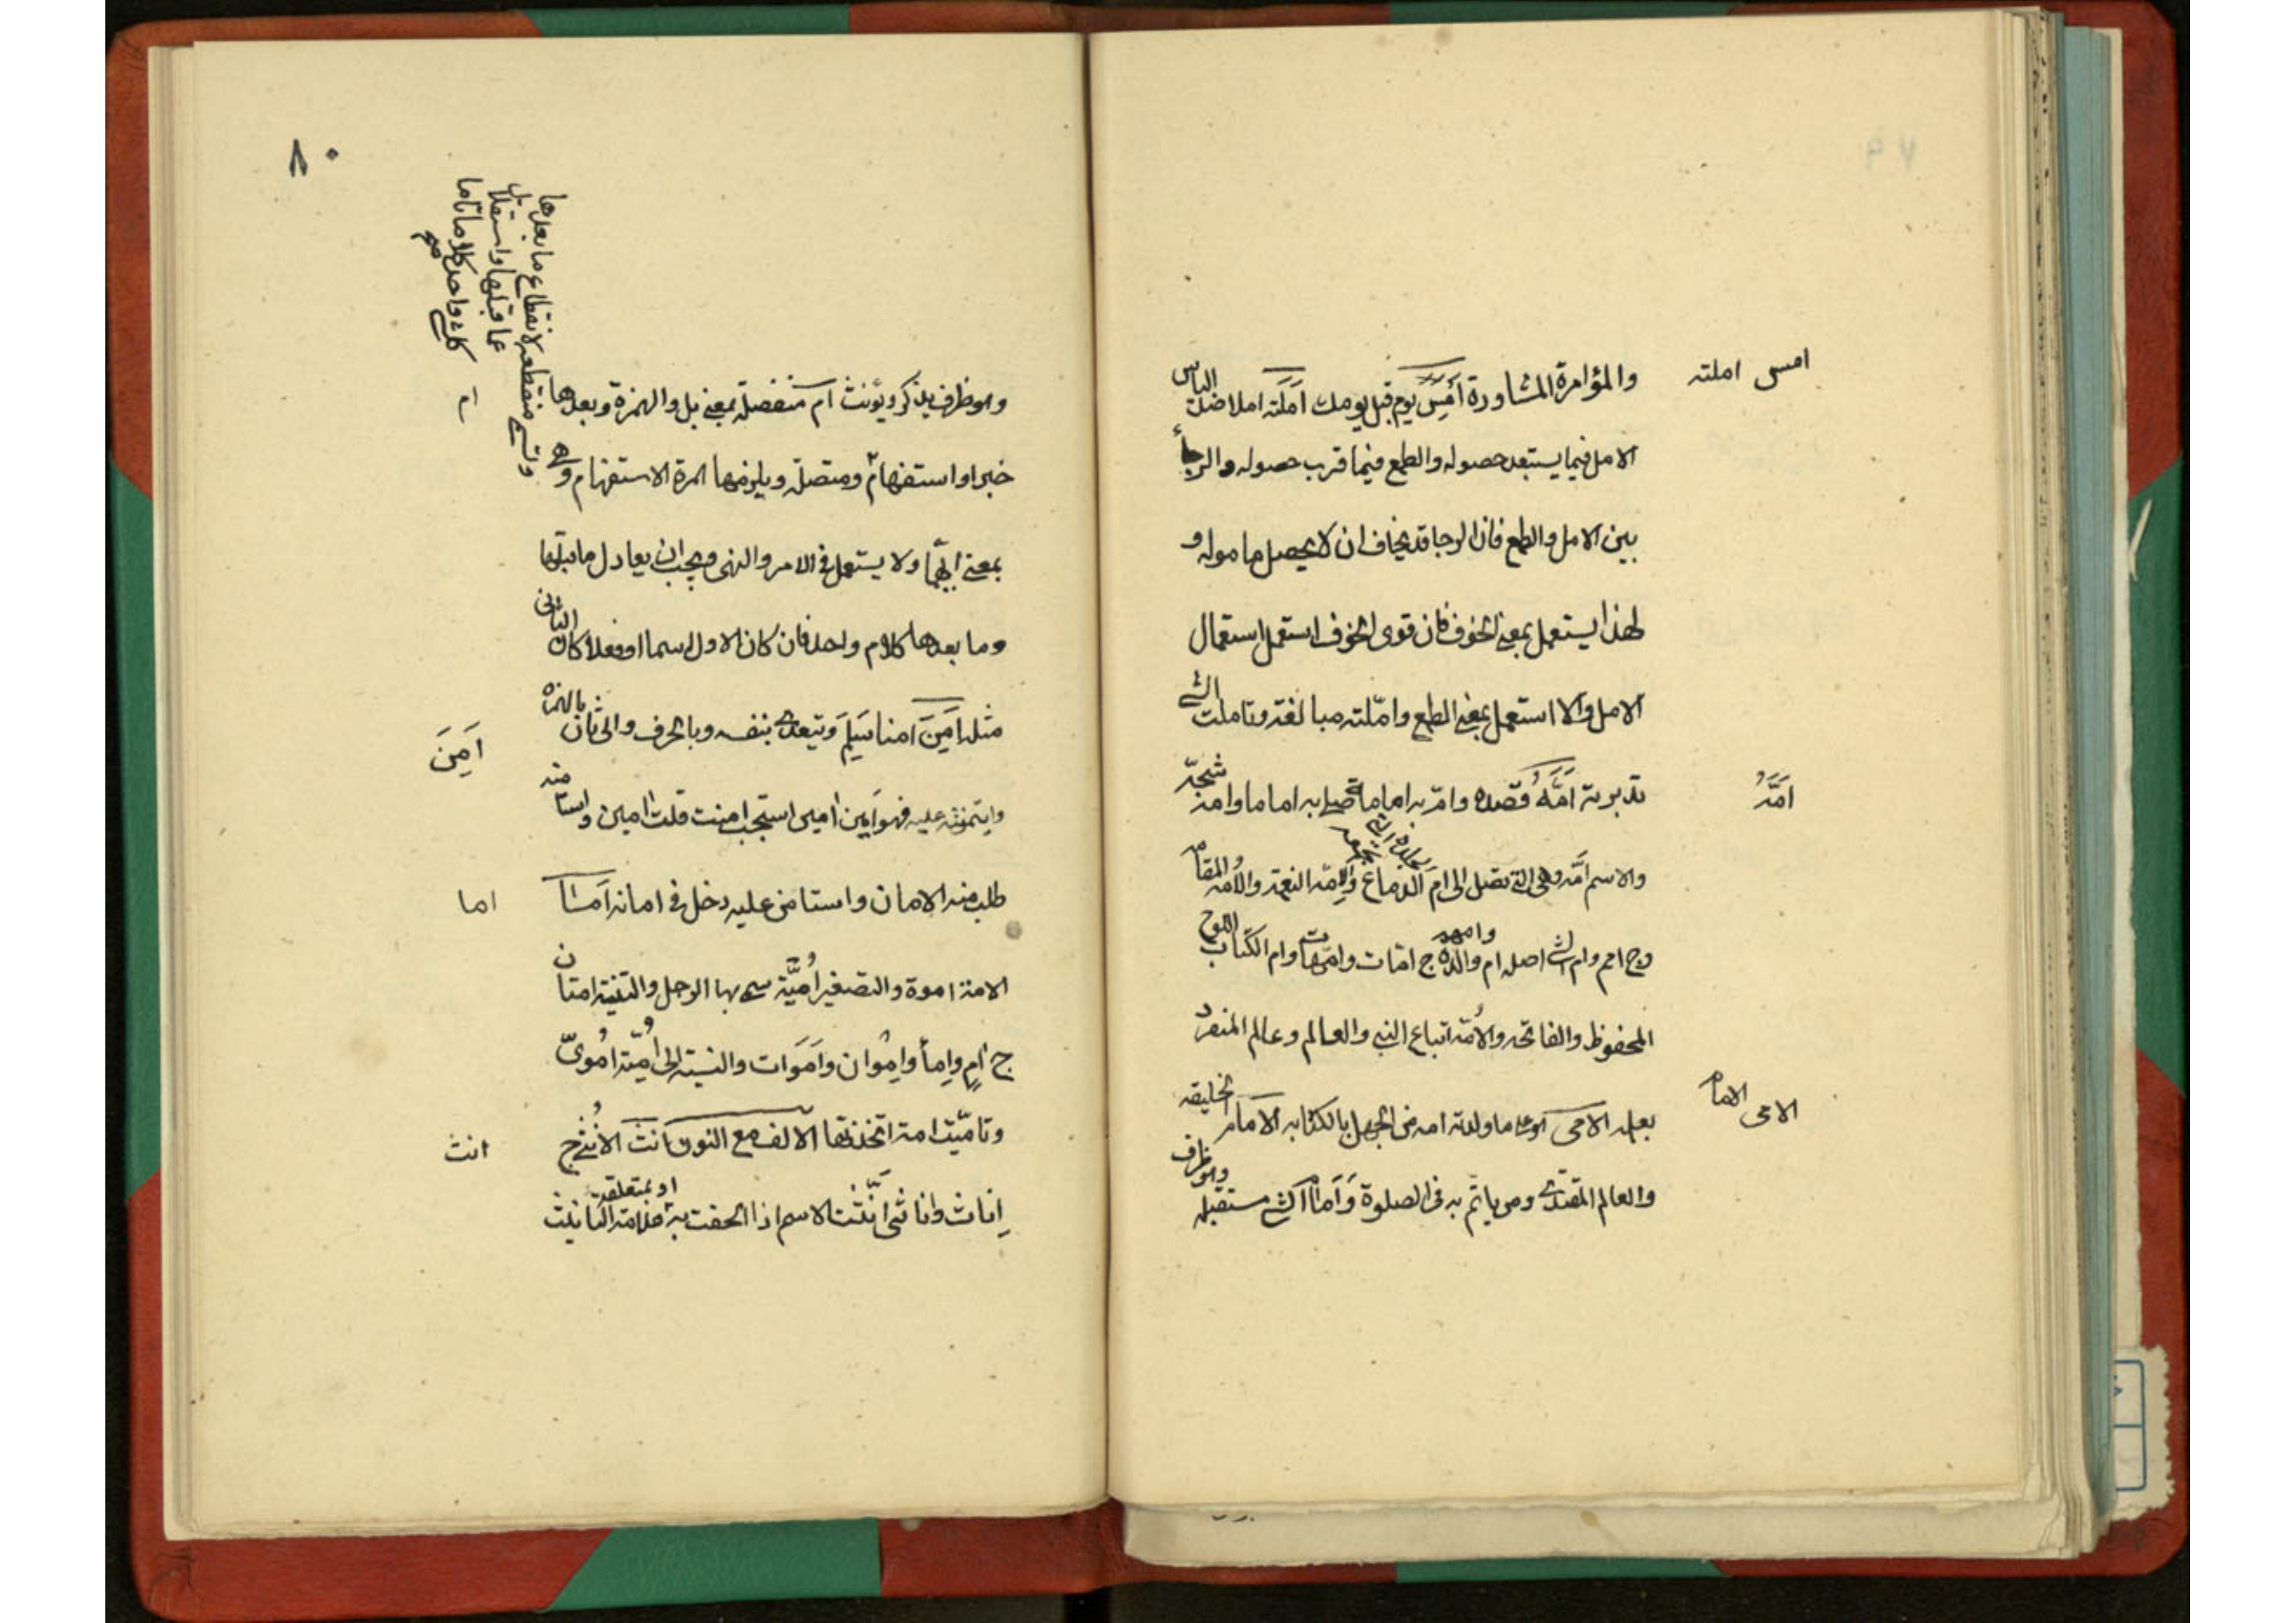 امس املته
والمؤامرة المشاورة أَمْسِ يوم قبل يومك أمَلَته املا ضد الياس
الامل فيما يستبعد حصوله والطمع فيما قرب حصوله والرجأ
بين الامل والطمع فان الرجا قد يخاف ان لا يحصل ماموله و
لهذا يستعمل بمعنى الخوف فان قوى الخوف استعمل استعمال
الامل والا استعمل بمعنى الطمع وامّلته مبالغة وتاملت الشئ
امَّهُ
تدبرته اَمَّهُ قصده وامّ به امامة صلى به اماما وامه شجّه
والاسم امّة وهى التى تصل الى ام الدماغ والاِمّة النعمة والاُمة المقام
وج امم وام الشئ اصله ام والدة ج امّات وامّهات وام الكتاب اللوح
المحفوظ والفاتحه والاُمّة اتباع النبى والعالم وعالم المنفرد
الامى الامام
بعلمه الامى ما ولدته امه من الجهل بالكتابه الامام الخليفه
والعالم المقتدى ومن ياتم به فى الصلوة وَاَمام الشئ مستقبله وهو ظرف
٨٠
وتسمى منقطعه لانقطاع ما بعدها
عما قبلها واستقلال
كل واحد كلاما تاما
وهو ظرف يذكر ويؤنث ام منفصلة بمعنى بل والهمزة وبعدها
خبرا واستفهام ومتصلة ويلزمها همزة الاستفهام وهى
بمعنى ايّهما ولا يستعمل فى الامر والنهى ويجب ان يعادل ما قبلها
وما بعدها كلام واحد فان كان الاول اسما او فعلا كان الثانى
اَمِنَ
مثله اَمِنَ امنا سَلِمَ ويتعدى بنفسه وبالحرف والى ثان بالهمزه
وايتمنته عليه فهو اَمِين اٰمين استجب امنت قلت اٰمين واستامنه
اما
طلب منه الامان واستامن عليه دخل فى امانه
الامة اموة والتصغير اُمَيَّة سمى بها الرجل والتثنية امتان
ج اٰمٍ واِمأ واِمْوان واَمَوات والنسبة الى اُميّة اُمَوىّ
انث
وتاميّت امة اتخذتها الالف مع النون انث الاُنثى ج
اِناث واناثى انّثت الاسم اذا الحقت به او بمتعلقه علامة التانيث